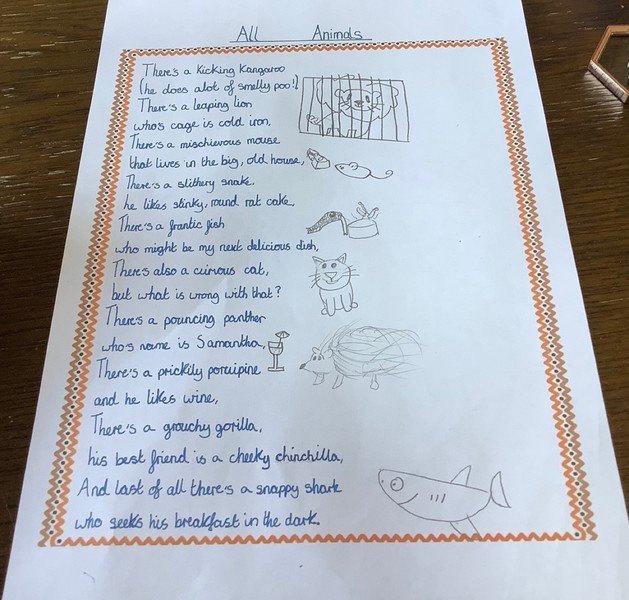 All Animals
There's a Kicking Kangaroo
(he does alot of smelly poo!)
There's a leaping lion
who's cage is cold iron,
There's a mischievous mouse
that lives in the big, old house,
There's a slithery snake,
he likes stinky, round rat cake,
There's a frantic fish
who might be my next delicious dish,
There's also a curious cat,
but what is wrong with that?
There's a pouncing panther
who's name is Samantha,
There's a prickily porcupine
and he likes wine,
There's a grouchy gorilla,
his best friend is a cheeky chinchilla,
And last of all there's a snappy shark
who seeks his breakfast in the dark.